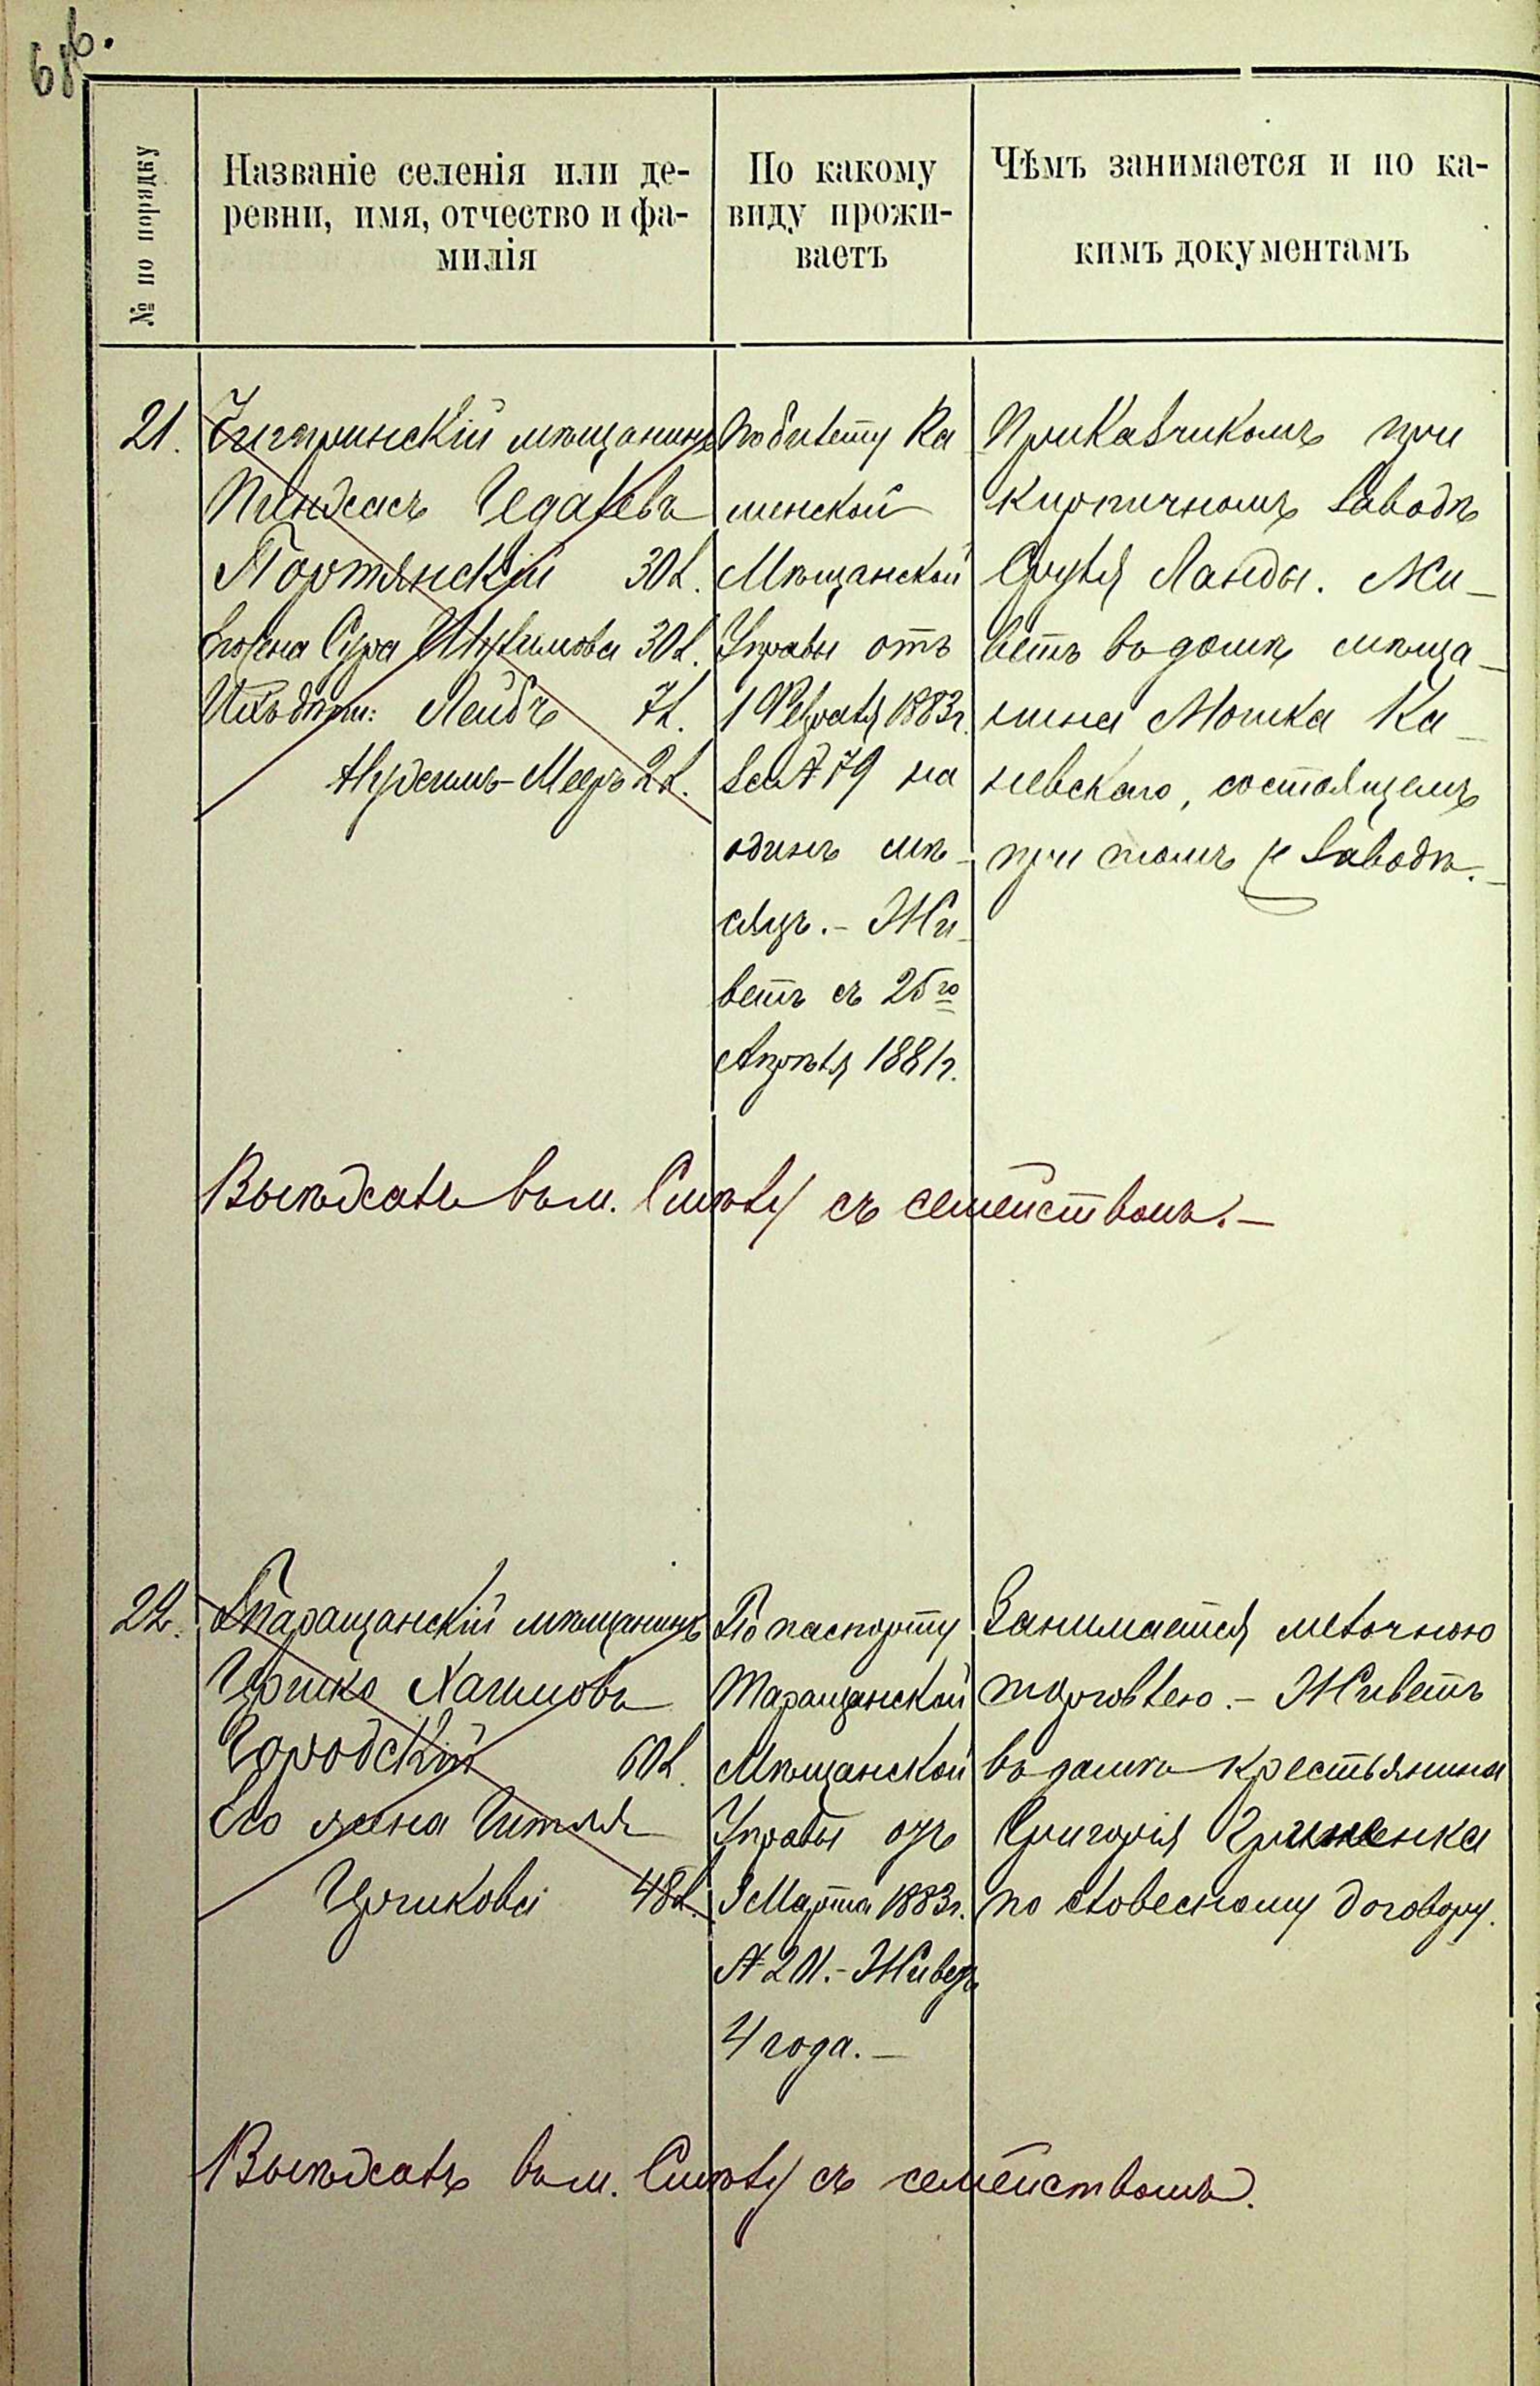 № по порядку
Названіе селенія или де-
ревни, имя, отчество и фа-
милія
По какому
виду прожи-
ваетъ
Чѣмъ занимается и по ка-
кимъ документамъ
21.
Чигиринскій мѣщанинъ
Пинхасъ
Портянскій 30 л.
Его жена Сура 30 л.
Ихъ дѣти: Лейбъ 7 л.
Мееръ 2 л.
По билету Ка
менской
Мѣщанской
Управы отъ
1 Февраля 1883 г.
за № 79 на
одинъ мѣ-
сяцъ. - Жи-
ветъ съ 25го
Апрѣля 1881 г.
Приказчикомъ при
кирпичномъ заводѣ
Сруля Ланды. Жи-
ветъ въ домѣ мѣща-
нина Мошка Ка-
невскаго, состоящемъ
при томъ же заводѣ. -
Выѣхалъ въ м. Смѣлу съ семействомъ. -
22.
Таращанскій мѣщанинъ
Хаимовъ
Городскій 60 л.
Его жена
48 л.
По паспорту
Таращанской
Мѣщанской
Управы отъ
3 Марта 1883 г.
№ 201. - Живетъ
4 года. -
Занимается мелочною
торговлею. - Живетъ
въ домѣ крестьянина
Григорія
по словесному договору.
Выѣхалъ въ м. Смѣлу съ семействомъ.